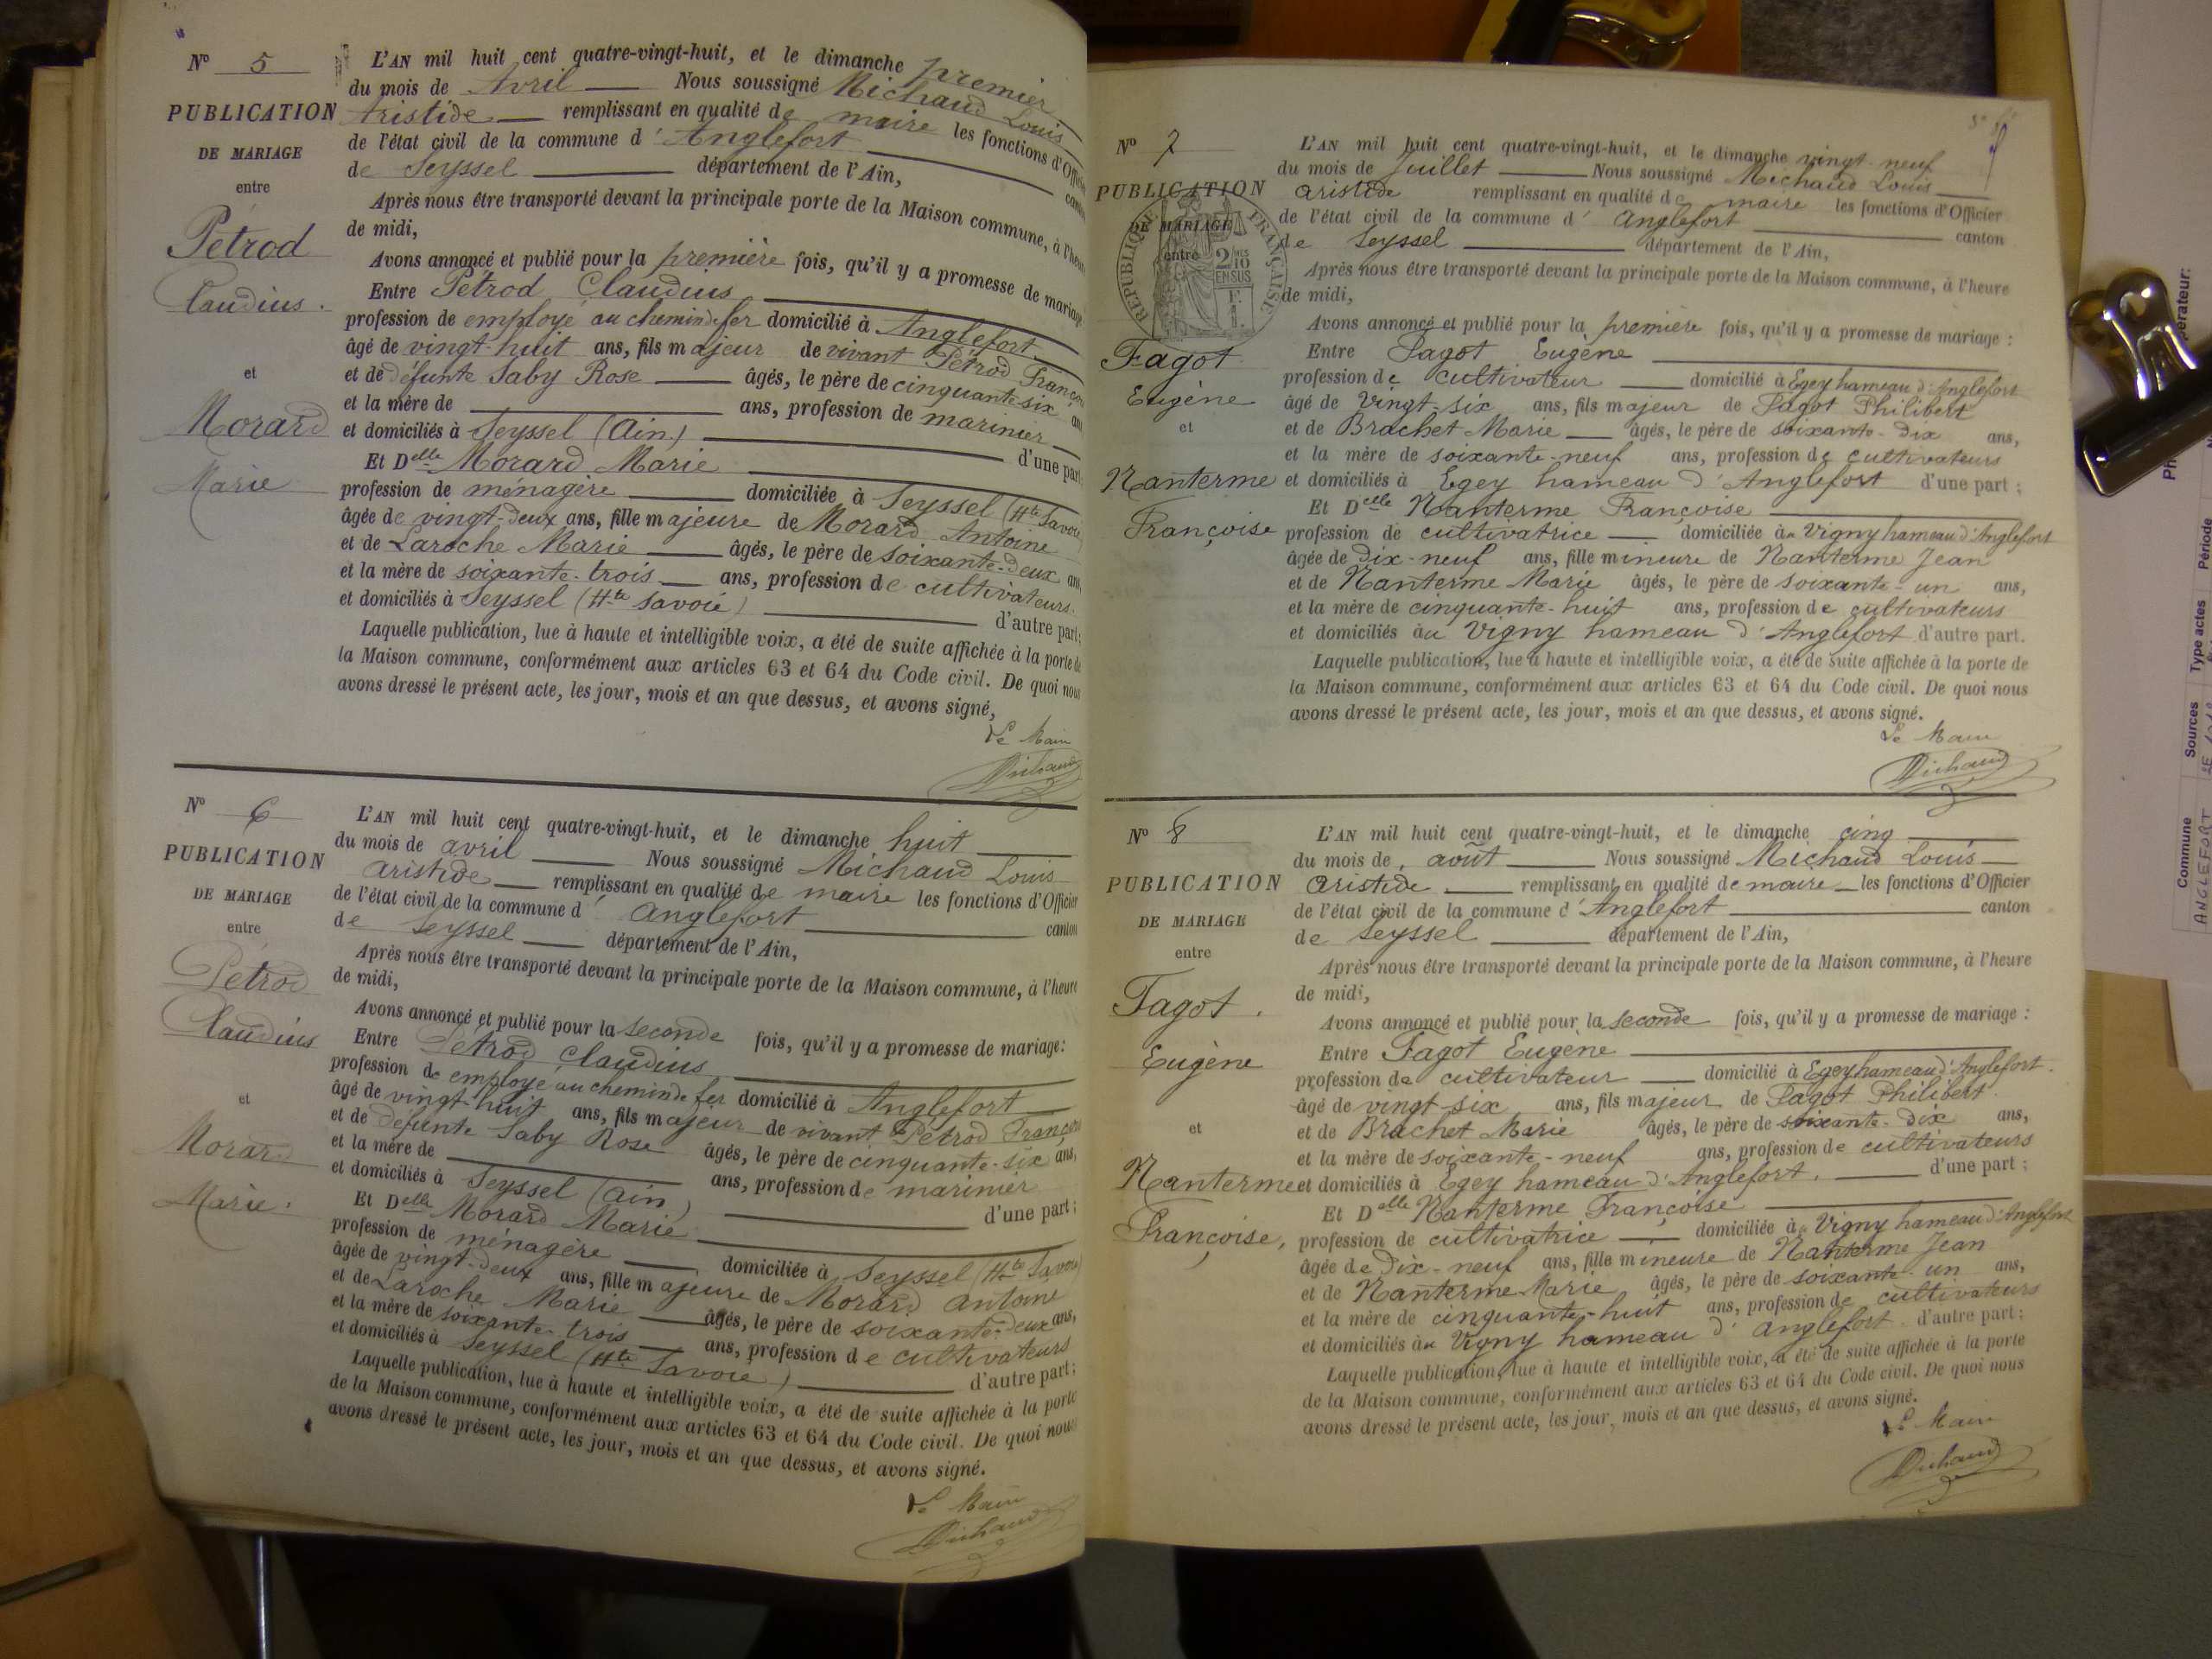 N° 5
PUBLICATION
DE MARIAGE
entre
Pétrod
Claudius.
et
Morard
Marie
L'AN mil huit cent quatre-vingt-huit, et le dimanche premier
du mois de Avril Nous soussigné Michaud Louis
Aristide remplissant en qualité de maire les fonctions d'Officier
de l'état civil de la commune d'Anglefort canton
de Seyssel département de l'Ain,
Après nous être transporté devant la principale porte de la Maison commune, à l'heure
de midi,
Avons annoncé et publié pour la première fois, qu'il y a promesse de mariage
Entre Pétrod Claudius
profession de employé au chemin de fer domicilié à Anglefort
âgé de vingt-huit ans, fils majeur de vivant Pétrod François
et de défunte Saby Rose âgés, le père de cinquante six ans
et la mère de ans, profession de marinier
et domiciliés à Seyssel (Ain) d'une part
Et Delle Morard Marie
profession de ménagère domiciliée à Seyssel (Hte Savoie)
âgée de vingt-deux ans, fille majeure de Morard Antoine
et de Laroche Marie âgés, le père de soixante-deux ans,
et la mère de soixante-trois ans, profession de cultivateurs
et domiciliés à Seyssel (Hte Savoie) d'autre part;
Laquelle publication, lue à haute et intelligible voix, a été de suite affichée à la porte de
la Maison commune, conformément aux articles 63 et 64 du Code civil. De quoi nous
avons dressé le présent acte, les jour, mois et an que dessus, et avons signé,
Le Maire
Michaud
N° 6
PUBLICATION
DE MARIAGE
entre
Pétrod
Claudius
et
Morard
Marie.
L'AN mil huit cent quatre-vingt-huit, et le dimanche huit
du mois de avril Nous soussigné Michaud Louis
aristide remplissant en qualité de maire les fonctions d'Officier
de l'état civil de la commune d'anglefort canton
de Seyssel département de l'Ain,
Après nous être transporté devant la principale porte de la Maison commune, à l'heure
de midi,
Avons annoncé et publié pour la seconde fois, qu'il y a promesse de mariage:
Entre Pétrod Claudius
profession de employé au chemin de fer domicilié à Anglefort
âgé de vingt-huit ans, fils majeur de vivant Pétrod François
et de défunte Saby Rose âgés, le père de cinquante-six ans,
et la mère de ans, profession de marinier
et domiciliés à Seyssel (ain) d'une part;
Et Delle Morard Marie
profession de ménagère domiciliée à Seyssel (Hte Savoie)
âgée de vingt-deux ans, fille majeure de Morard antoine
et de Laroche Marie âgés, le père de soixante-deux ans,
et la mère de soixante-trois ans, profession de cultivateurs
et domiciliés à Seyssel (Hte Savoie) d'autre part;
Laquelle publication, lue à haute et intelligible voix, a été de suite affichée à la porte
de la Maison commune, conformément aux articles 63 et 64 du Code civil. De quoi nous
avons dressé le présent acte, les jour, mois et an que dessus, et avons signé.
Le Maire
Michaud
N° 7
PUBLICATION
DE MARIAGE
entre
RÉPUBLIQUE FRANÇAISE
2/10 EN SUS
Fagot
Eugène
et
Nanterme
Françoise
L'AN mil huit cent quatre-vingt-huit, et le dimanche vingt-neuf
du mois de Juillet Nous soussigné Michaud Louis
aristide remplissant en qualité de maire les fonctions d'Officier
de l'état civil de la commune d'anglefort canton
de Seyssel département de l'Ain,
Après nous être transporté devant la principale porte de la Maison commune, à l'heure
de midi,
Avons annoncé et publié pour la première fois, qu'il y a promesse de mariage :
Entre Fagot Eugène
profession de cultivateur domicilié à Egey hameau d'Anglefort
âgé de vingt-six ans, fils majeur de Fagot Philibert
et de Brachet Marie âgés, le père de soixante-dix ans,
et la mère de soixante-neuf ans, profession de cultivateurs
et domiciliés à Egey hameau d'Anglefort d'une part ;
Et Delle Nanterme Françoise
profession de cultivatrice domiciliée àu Vigny hameau d'Anglefort
âgée de dix-neuf ans, fille mineure de Nanterme Jean
et de Nanterme Marie âgés, le père de soixante-un ans,
et la mère de cinquante-huit ans, profession de cultivateurs
et domiciliés àu Vigny hameau d'Anglefort d'autre part.
Laquelle publication, lue à haute et intelligible voix, a été de suite affichée à la porte de
la Maison commune, conformément aux articles 63 et 64 du Code civil. De quoi nous
avons dressé le présent acte, les jour, mois et an que dessus, et avons signé.
Le Maire
Michaud
N° 8
PUBLICATION
DE MARIAGE
entre
Fagot.
Eugène
et
Nanterme
Françoise,
L'AN mil huit cent quatre-vingt-huit, et le dimanche cinq
du mois de août Nous soussigné Michaud Louis
aristide remplissant en qualité de maire les fonctions d'Officier
de l'état civil de la commune d'Anglefort canton
de Seyssel département de l'Ain,
Après nous être transporté devant la principale porte de la Maison commune, à l'heure
de midi,
Avons annoncé et publié pour la seconde fois, qu'il y a promesse de mariage :
Entre Fagot Eugène
profession de cultivateur domicilié à Egey hameau d'Anglefort.
âgé de vingt-six ans, fils majeur de Fagot Philibert
et de Brachet Marie âgés, le père de soixante-dix ans,
et la mère de soixante-neuf ans, profession de cultivateurs
et domiciliés à Egey hameau d'Anglefort. d'une part ;
Et Delle Nanterme Françoise
profession de cultivatrice domiciliée àu Vigny hameau d'Anglefort
âgée de dix-neuf ans, fille mineure de Nanterme Jean
et de Nanterme Marie âgés, le père de soixante-un ans,
et la mère de cinquante-huit ans, profession de cultivateurs
et domiciliés àu Vigny hameau d'anglefort d'autre part;
Laquelle publication, lue à haute et intelligible voix, a été de suite affichée à la porte
de la Maison commune, conformément aux articles 63 et 64 du Code civil. De quoi nous
avons dressé le présent acte, les jour, mois et an que dessus, et avons signé.
Le Maire
Michaud
Commune
Sources
Type actes
Période
ANGLEFORT